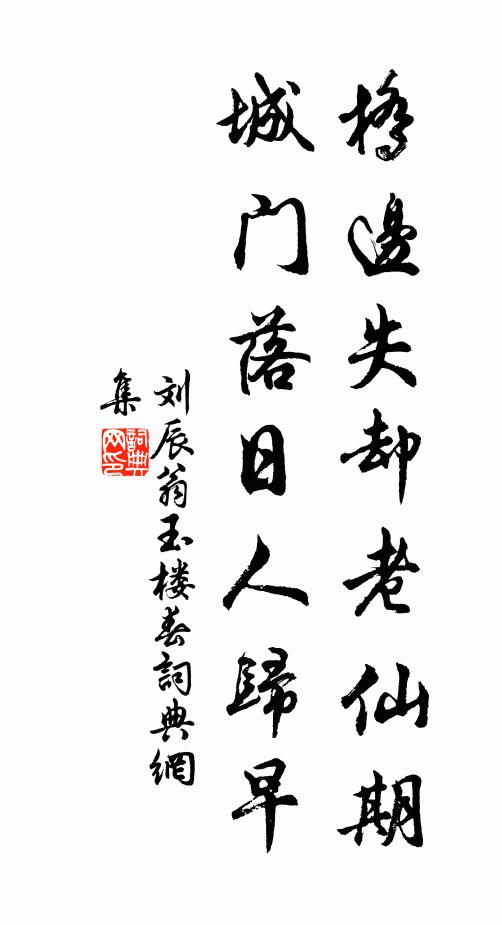 橋邊失却老仙期
城門落日人歸早
刘辰翁玉楼春詞典網
集
詞典
网印